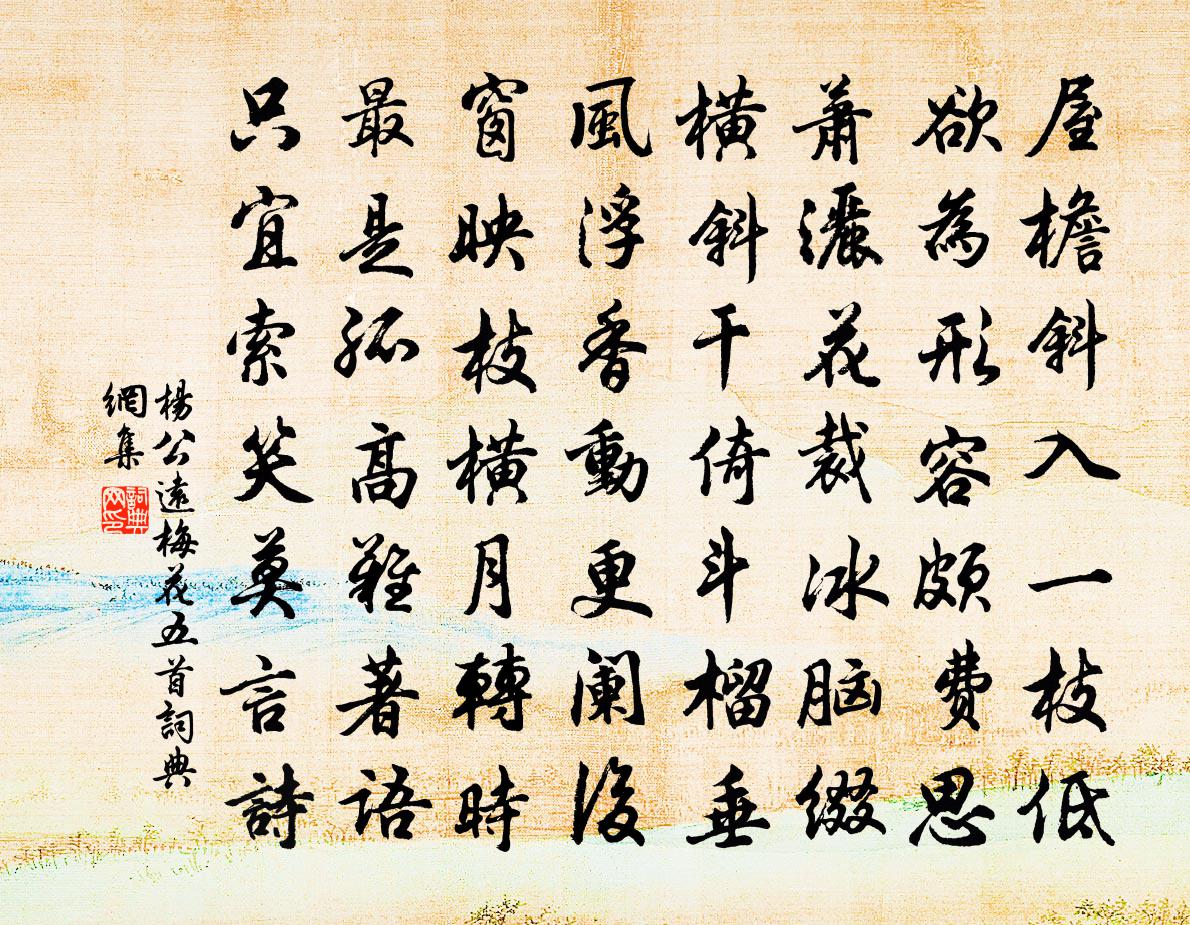 屋檐斜入一枝低
欲為形容頗費思
蕭灑花裁冰脑綴
橫斜干倚斗榴垂
風浮香動更阑後
窗映枝橫月轉時
最是孤高難著语
只宜索笑莫言詩
楊公遠梅花五首詞典
網集
詞典
网印